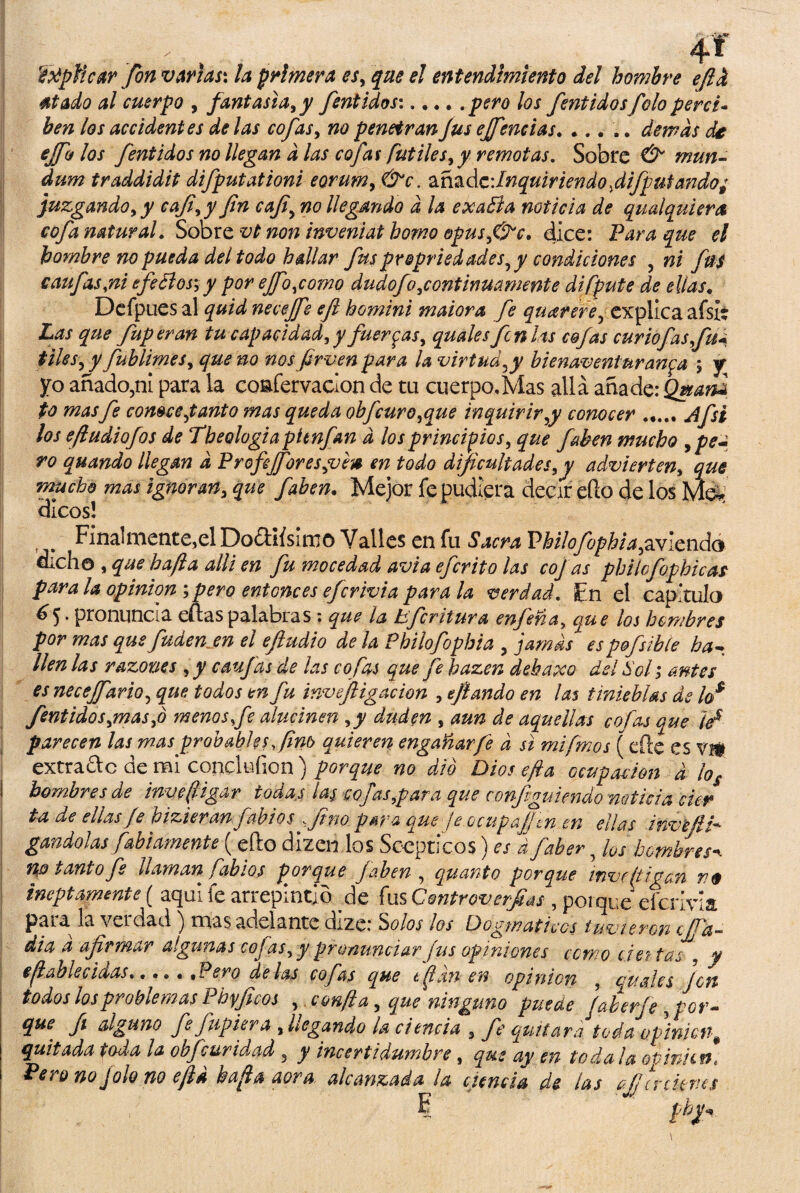 41
explicar son varias: la primera es, que el entendimiento del hombre està
atado al cuerpo , fantasìa, y sentidos: . . . . . . pero los sentidos solo perci-
ben los accidentes de las cosas, no penetran sus essencias. . . . . . demàs de
esso los sentidos no llegan à las cosas sutiles, y remotas. Sobre & mun-
dum traddidit disputationi eorum, &c. añade: Inquiriendo, disputando,
juzgando, y casi, y sin casi, no llegando à la exacta noticia de qualquiera
cosa natural. Sobre vt non inveniat homo opus, &c. dice: Para que el
hombre no pueda del todo hallar sus propriedades, y condiciones , ni sus
causas, ni efectos; y por esso, como dudoso, continuamente dispute de ellas.
Despues al quid necesse est homini maiora se quærere, explica assi:
Las que superan tu capacidad, y fuerças, quales son las cosas curiosas, su-
tiles, y sublimes, que no nos sirven para la virtud, y bienaventurança ; y
yo añado, ni para la conservacion de tu cuerpo. Mas allà añade: Quan-
to mas se conoce, tanto mas queda obscuro, que inquirir, y conocer ..... Assi
los estudiosos de Theologia piensan à los principios, que saben mucho , pe-
ro quando llegan à Professores, vèn en todo dificultades, y advierten, que
mucho mas ignoran, que saben. Mejor se pudiera decir esto de los Me-
dicos!
Finalmente, el Doctissimo Valles en su Sacra Philosophia, aviendo
dicho , que hasta alli en su mocedad avia escrito las cosas philosophicas
para la opinion ; pero entonces escrivia para la verdad. En el capitulo
65. pronuncia estas palabras : que la Escritura enseña, que los hombres
por mas que suden en el estudio de la Philosophia , jamàs es possible ha-
llen las razones , y causas de las cosas que se hazen debaxo del Sol ; antes
es necessario, que todos en su investigacion , estando en las tinieblas de los
sentidos, mas, ò menos, se alucinen , y duden , aun de aquellas cosas que les
parecen las mas probables, sino quieren engañarse à si mismos ( este es vn
extracto de mi conclusion ) porque no diò Dios esta ocupacion à los
hombres de investigar todas las cosas, para que consiguiendo noticia cier
ta de ellas se hizieran sabios , sino para que se ocupassen en ellas investi-
gandolas sabiamente ( esto dizen los Scepticos ) es à saber , los hombres
no tanto se llaman sabios porque saben , quanto porque investigan no
ineptamente ( aqui se arrepintiò de sus Controversias , porque escrivia
para la verdad ) mas adelante dize: Solos los Dogmaticos tuvieron ossa-
dia à afirmar algunas cosas, y pronunciar sus opiniones como ciertas , y
establecidas. . . . . . Pero de las cosas que estàn en opinion , quales son
todos los problemas Physicos , consta , que ninguno puede saberse , por-
que si alguno se supiera , llegando la ciencia , se quitarà toda opinion,
quitada toda la obscuridad , y incertidumbre , que ay en toda la opinion.
Pero no solo no està hasta aora alcanzada la ciencia de las assercienes
E phy-